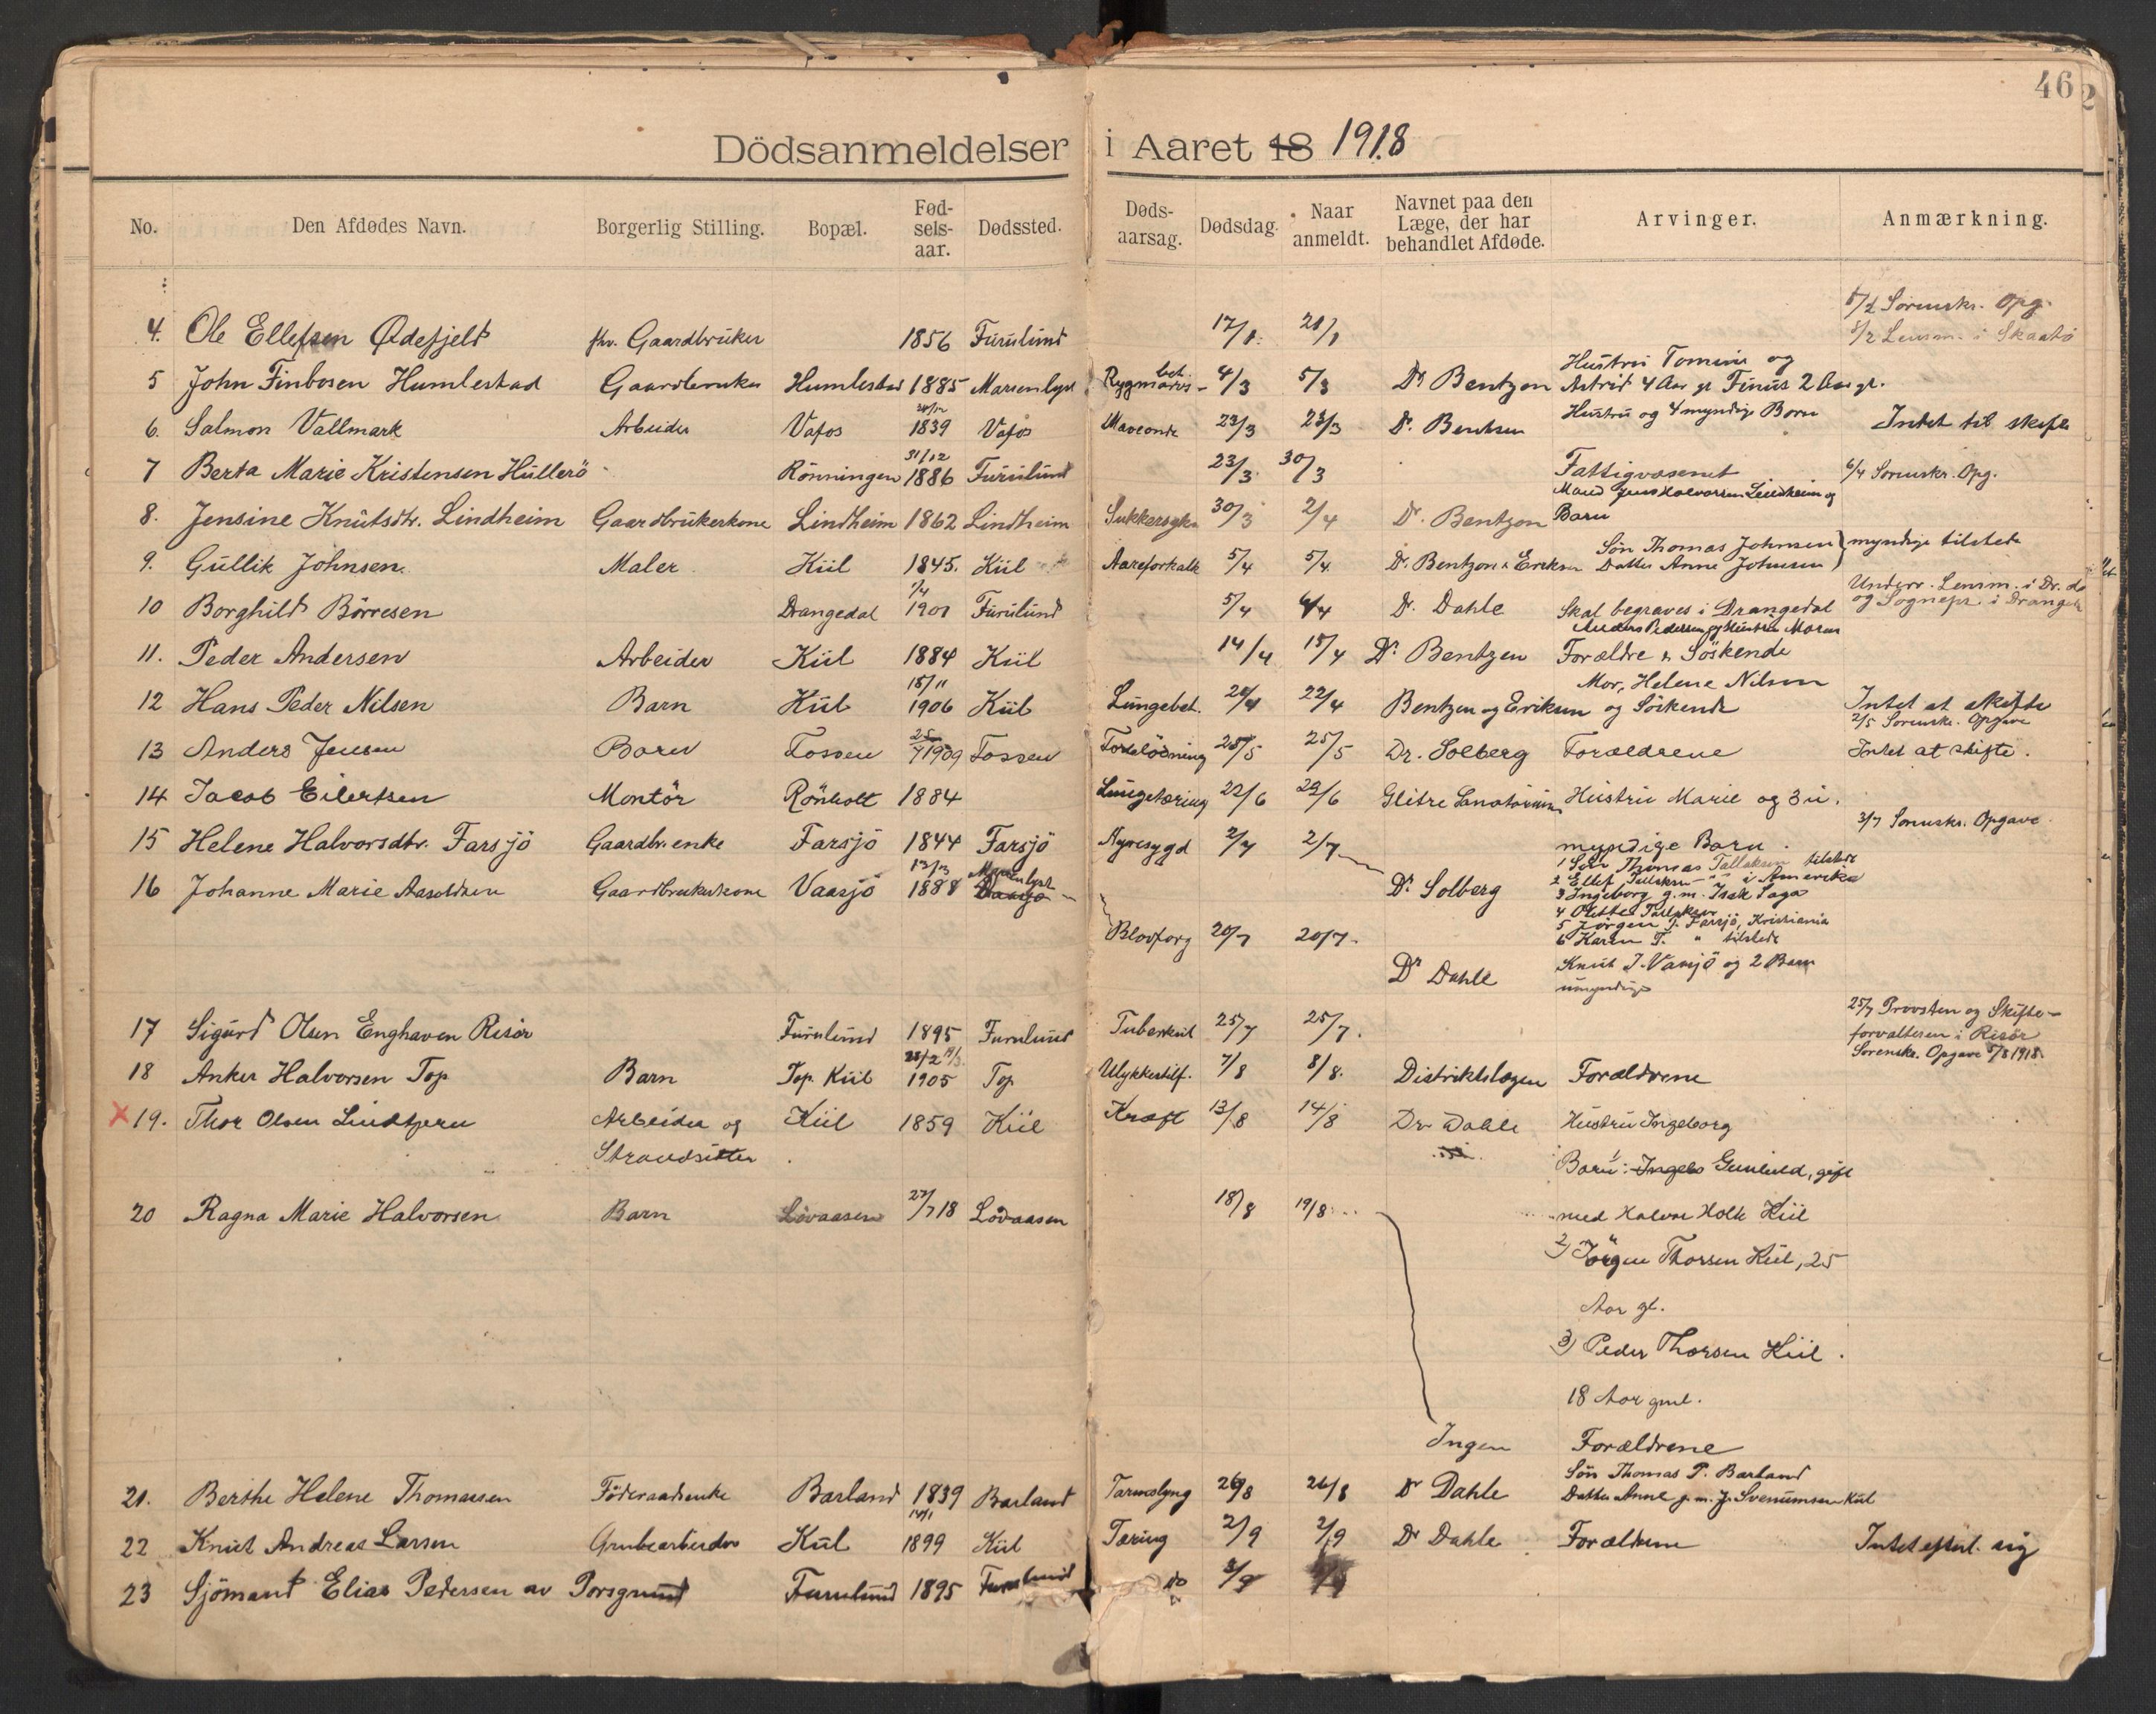 46
2
Dödsanmeldelser i Aaret 18 1918
No. Den Afdødes Navn. Borgerlig Stilling. Bopæl. Fødselsaar. Dødssted. Dødsaarsag. Dødsdag. Naar anmeldt. Navnet paa den Læge, der har behandlet Afdøde. Arvinger. Anmærkning.
5/2 Sorenskr. Opg.
4. Ole Ellefsen Ødefjeld fhv. Gaardbruker 1856 Furulund 17/1. 21/1 8/2 Lensm. i Skaatö
Hustru Tomine og
5 John Finbosen Humlestad Gaardbruker Humlestad 1885 Marienlyst Rygmarvsbet. 4/3 5/3 Dr Bentzon Astrid 4 Aar gl. Finus 2 Aar gl.
6. Salmon Vallmark Arbeider Vafos 1839 Vafos Maveonde 23/3 23/3 Dr. Bentsen Hustru og 4 myndige Born Intet til skifte
31/12
7 Berta Marie Kristensen Hullerö Rönningen 1886 Furulund 23/3 30/3 Fattigvæsenet 6/4 Sorenskr. Opg.
Mand Jens Halvorsen Lindheim og
8. Jensine Knutsdtr. Lindheim Gaardbrukerkone Lindheim 1862 Lindheim Sukkersyke 30/3 2/4 Dr. Bentzon Barn
9. Gullik Johnsen. Maler Kiil 1845. Kiil Aareforkalk 5/4 5/4 Dr. Bentzon & Eriksen Sön Thomas Johnsen Datter Anne Johnsen myndige tilstede
Underr. Lensm. i Dr.
10 Borghild Börresen Drangedal 1/4 1901 Furulund 5/4 6/4 Dr. Dahle Skal begraves i Drangedal og Sognepr. i Drangedal
Anders Pedersen og Hustru Maren
11. Peder Andersen Arbeider Kiil 1884 Kiil 14/4 15/4 Dr Bentzen Forældre & Söskende
15/11 Mor, Helene Nilsen
12 Hans Peder Nilsen Barn Kiil 1906 Kiil Lungebet. 20/4 22/4 Bentzen og Eriksen og Söskende Intet at skifte
2/5 Sorenskr. Opgave
13 Anders Jensen Barn Fossen 25/7 1909 Fossen Forblödning 25/5 25/5 Dr. Solberg Forældrene Intet at skifte.
14 Jacob Eilertsen Montör Rönholt 1884 Lungetæring 22/6 29/6 Glitre Sanatorium Hustru Marie og 3 u.
3/7 Sorenskr. Opgave.
15 Helene Halvorsdtr. Farsjö Gaardbr.enke Farsjö 1844 Farsjö Nyresygd 2/7 2/7 Dr. Solberg myndige Barn.
1 Sön Thomas Tallaksen tilstede
2 Ellef Tallaksen i Amerika
3 Ingeborg g.m. Isak Saga
4 Tallaksen
5 Jörgen T. Farsjö, Kristiania
6 Karen T. " tilstede
16 Johanne Marie Aasoldsen Gaardbrukerkone Vaasjö 1888 Vaasjö Marienlyst Blodforg 20/7 20/7. Dr Dahle Knut J. Vasjö og 2 Barn
umyndige
25/7 Provsten og Skifte-
17 Sigurd Olsen Enghaven Risör Furulund 1895 Furulund Tuberkul 25/7 25/7. forvalteren i Risör
Sorenskr. Opgave 5/8 1918.
18 Anker Halvorsen Top Barn Top. Kiil 1905 Top Ulykkestilf. 7/8 8/8. Distriktslægen Forældrene
x 19. Thor Olsen Lindtjern Arbeider og Kiil 1859 Kiil Kræft 13/8 14/8 Dr. Dahle Hustru Ingeborg
Strandsitter Barn: 1 Ingeb Gunhild, gift
20 Ragna Marie Halvorsen Barn Lövaasen 27/7 18 Lövaasen 18/8 19/8 med Halvor Holk Kiil
2) Jörgen Thorsen Kiil, 25
Aar gl.
3) Peder Thorsen Kiil.
18 Aar gml.
Ingen Forældrene
Sön Thomas P. Barland
21. Berthe Helene Thomassen Föderaadsenke Barland 1839 Barland Tarmslyng 26/8 26/8 Dr Dahle Datter Anne g.m. J. Svenumsen Kiil
22 Knut Andreas Larsen Grubearbeider Kiil 1899 Kiil Tæring 2/9 2/9 Dr Dahle Forældrene Intet efterl. sig
23 Sjömand Elias Pedersen av Porsgrund Furulund 1895 Furulund do 3/9